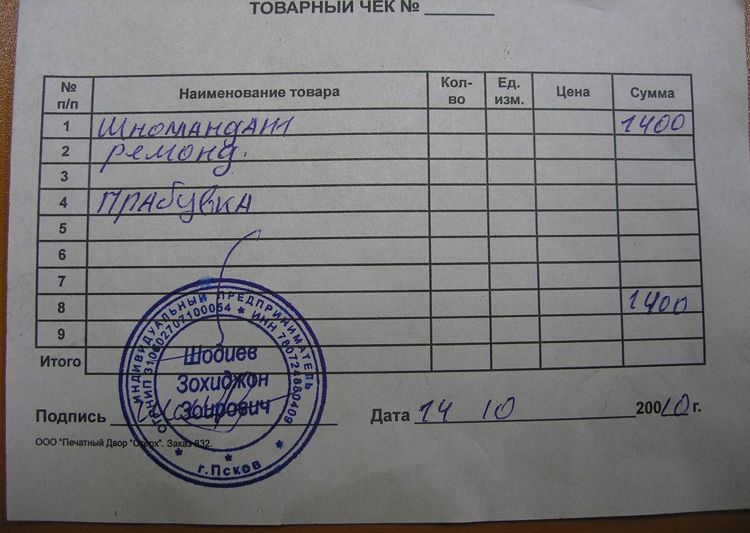 ТОВАРНЫЙ ЧЕК №
№ п/п Наименование товара Кол-во Ед. изм. Цена Сумма
1 Шномандаж 1400
2 ремонд.
3
4 Прабувка
5
6
7
8 1400
9
Итого
Подпись Дата 14 10 20010 г.
ООО "Печатный Двор Заказ 832.
ИНДИВИДУАЛЬНЫЙ ПРЕДПРИНИМАТЕЛЬ
ОГРНИП 310602707100054 * ИНН 780724860409
Шодиев
Зохиджон
Зоирович
г.Псков